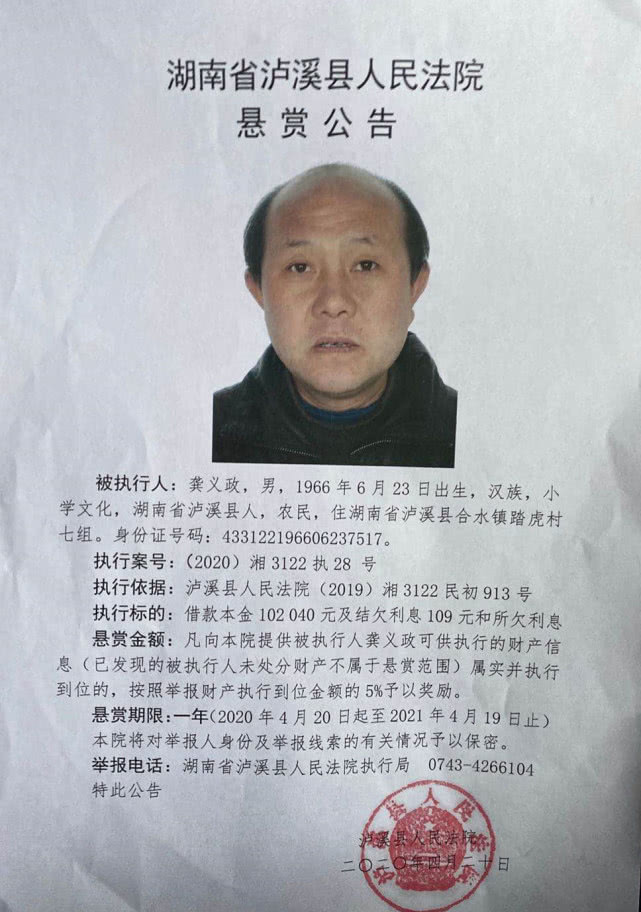 湖南省泸溪县人民法院
悬赏公告
被执行人：龚义政，男，1966年6月23日出生，汉族，小
学文化，湖南省泸溪县人，农民，住湖南省泸溪县合水镇踏虎村
七组。身份证号码：433122196606237517。
执行案号：（2020）湘3122执28 号
执行依据：泸溪县人民法院（2019）湘3122民初913号
执行标的：借款本金102 040元及结欠利息109元和所欠利息
悬赏金额：凡向本院提供被执行人龚义政可供执行的财产信
息（已发现的被执行人未处分财产不属于悬赏范围）属实并执行
到位的，按照举报财产执行到位金额的5%予以奖励。
悬赏期限：一年(2020年4月20日起至2021年4月19日止）
本院将对举报人身份及举报线索的有关情况予以保密。
举报电话：湖南省泸溪县人民法院执行局 0743-4266104
特此公告
泸溪县人民法院
二〇二〇年四月二十日